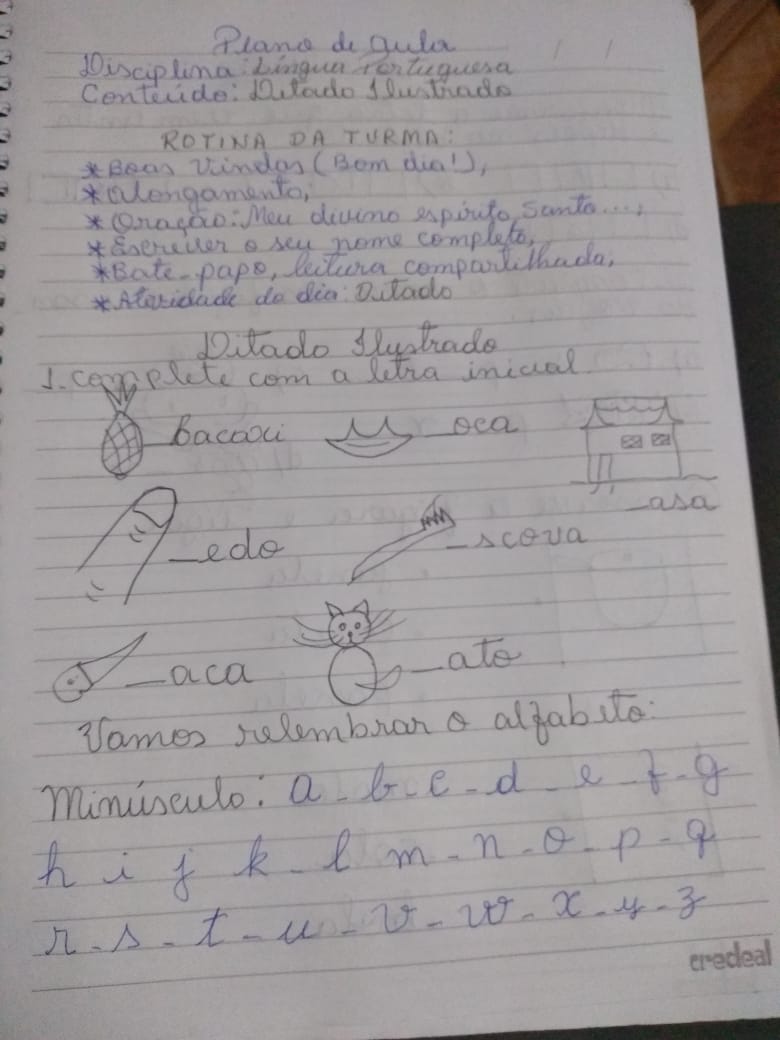 Plano de aula
Disciplina: Língua Portuguesa
Conteúdo: Ditado Ilustrado
ROTINA DA TURMA:
*Boas Vindas (Bom dia!),
*Alongamento,
*Oração: Meu divino espírito Santo...,
*Escrever o seu nome completo,
*Bate-papo, leitura compartilhada,
*Atividade do dia: Ditado
Ditado Ilustrado
1. complete com a letra inicial
_bacaxi _oca
_asa
_edo _scova
_aca _ato
Vamos relembrar o alfabeto:
Minúsculo: a - b - c - d - e f - g
h i j k - l m - n - o - p - q
r - s - t - u - v - w - x - y - z
credeal